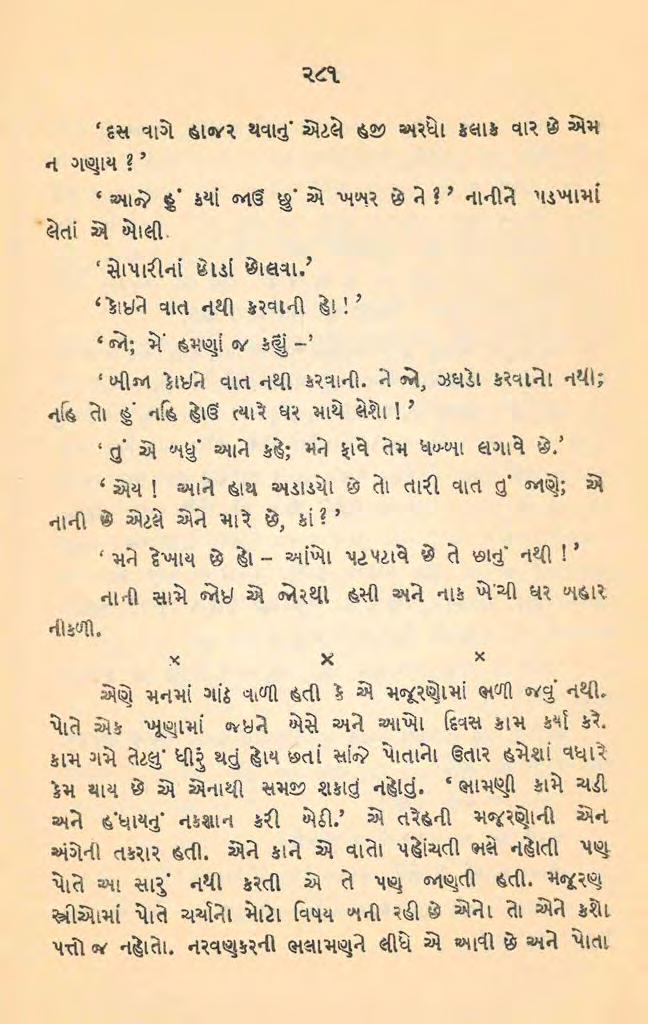 ૨૮૧
‘દસ વાગે હાજર થવાનું એટલે હજી અરધો કલાક વાર છે એમ
ન ગણાય ?’
‘આજે હું કયાં જાઉં છું એ ખબર છે ને ?’ નાનીને પડખામાં
લેતાં એ બોલી.
‘સોપારીનાં છોડાં છોલવા.’
‘કોઇને વાત નથી કરવાની હો !’
‘જો; મેં હમણાં જ કહ્યું –’
‘બીજા કોઇને વાત નથી કરવાની. ને જો, ઝઘડો કરવાનો નથી;
નહિ તો હું નહિ હોઉં ત્યારે ઘર માથે લેશો !’
‘તું એ બધું આને કહે; મને ફાવે તેમ ધબ્બા લગાવે છે.’
‘એય ! આને હાથ અડાડયો છે તો તારી વાત તું જાણે; એ
નાની છે એટલે એને મારે છે, કાં ?’
‘મને દેખાય છે હો – આંખો પટપટાવે છે તે છાનું નથી !’
નાની સામે જોઇ એ જોરથી હસી અને નાક ખેંચી ઘર બહાર
નીકળી.
× × ×
એણે મનમાં ગાંઠ વાળી હતી કે એ મજૂરણોમાં ભળી જવું નથી.
પોતે એક ખૂણામાં જઇને બેસે અને આખો દિવસ કામ કર્યા કરે.
કામ ગમે તેટલું ધીરું થતું હોય છતાં સાંજે પોતાનો ઉતાર હમેશાં વધારે
કેમ થાય છે એ એનાથી સમજી શકાતું નહોતું. ‘ભામણી કામે ચડી
અને હંધાયનું નકશાન કરી બેઠી.’ એ તરેહની મજરણોની એન
અંગેની તકરાર હતી. એને કાને એ વાતો પહોંચતી ભલે નહોતી પણ
પોતે આ સારું નથી કરતી એ તે પણ જાણતી હતી. મજૂરણ
સ્ત્રીઓમાં પોતે ચર્ચાનો મોટો વિષય બની રહી છે એનો તો એને કશો
પત્તો જ નહોતો. નરવણકરની ભલામણને લીધે એ આવી છે અને પોતા